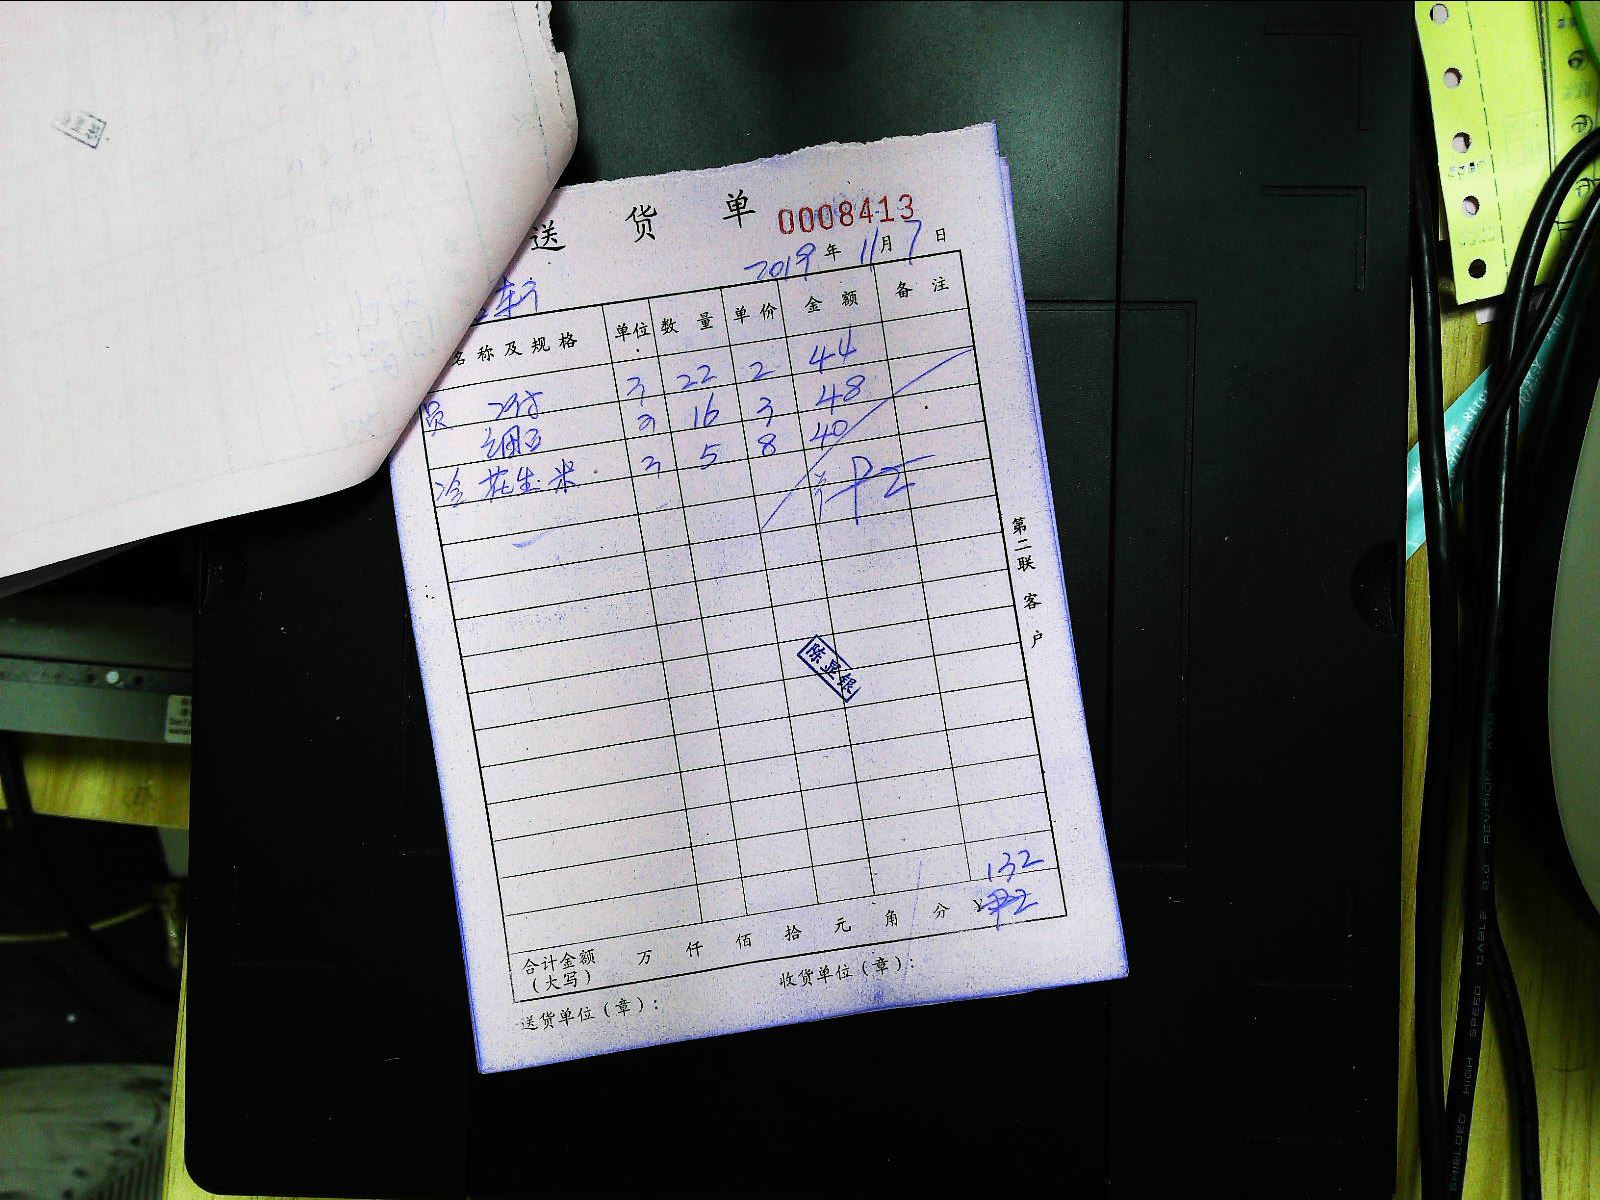 送 货 单 0008413
2019 年 11 月 7 日
名 称 及 规 格 单位 数 量 单 价 金 额 备 注
员 22 2 44
16 3 48
冷 花生米 5 8 40
第二联 客户
陈显银
132
合计金额 (大写) 万 仟 佰 拾 元 角 分 ¥
送货单位(章): 收货单位(章):
SHIELDED HIGH SPEED CABLE 2.0 REVISION